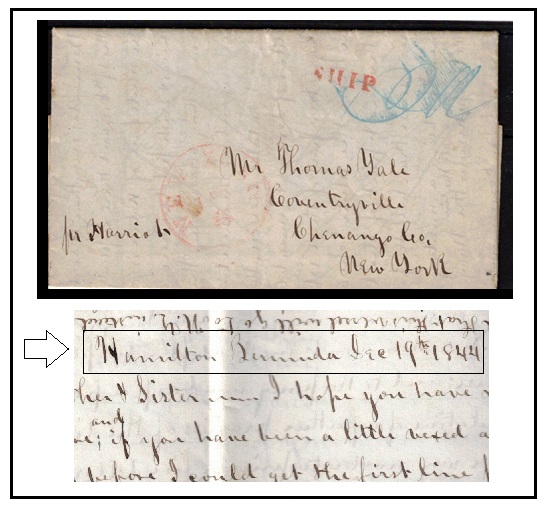 SHIP
Mr Thomas Yale
Coventryville
Chenango Co,
New York
pr Harriot
that this vessel will go to N.Y. instead
Hamilton Bermuda Dec 19th 1844
ther & Sister I hope you have
and
if you have been a little vexed a
before I could get the first line